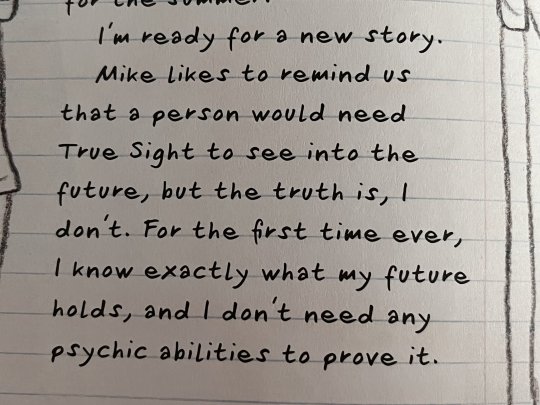 for the summer.
I'm ready for a new story.
Mike likes to remind us
that a person would need
True Sight to see into the
future, but the truth is, I
don't. For the first time ever,
I know exactly what my future
holds, and I don't need any
psychic abilities to prove it.